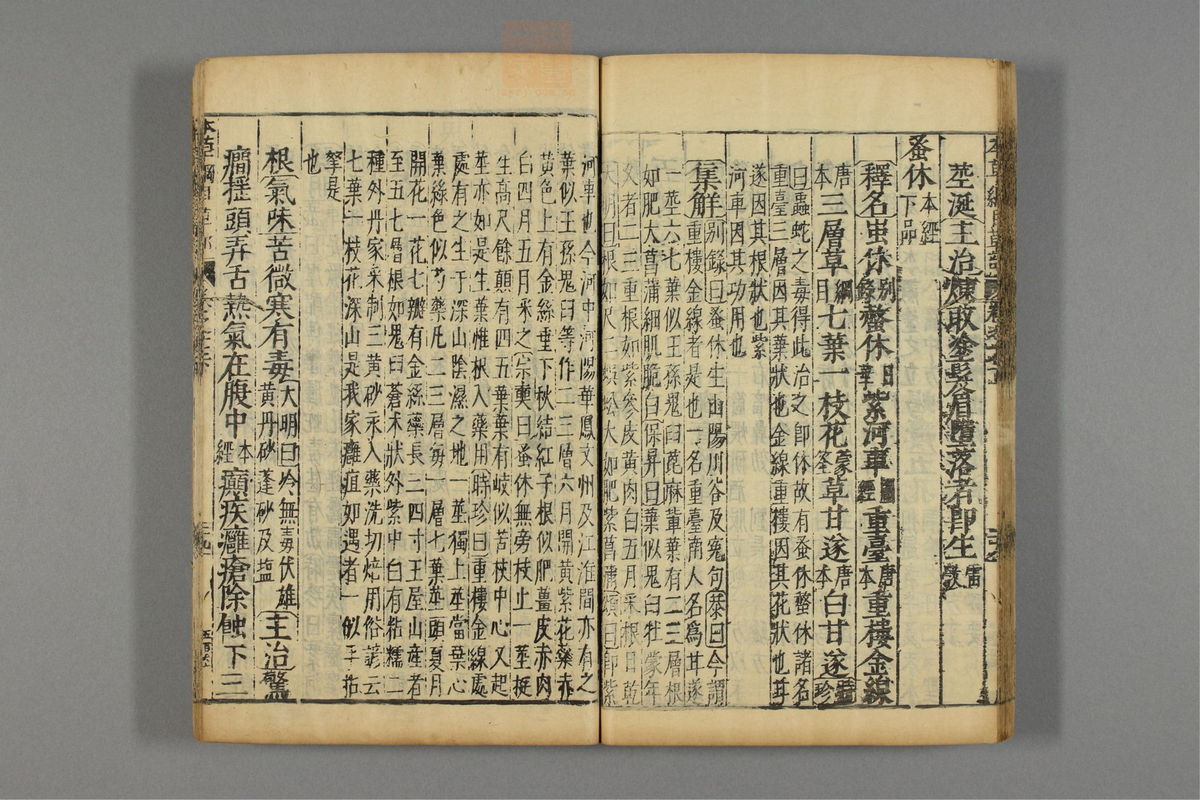 莖涎主治煉敢塗髮眉墮落者即生雷斆
蚤休本經下品
釋名蚩休別錄螫休日華紫河車圖經重臺唐本重樓金線
唐本三層草綱目七葉一枝花蒙筌草甘遂唐本白甘遂時珍
曰蟲蛇之毒得此治之即休故有蚤休螫休諸名
重臺三層因其葉狀也金線重樓因其花狀也甘
遂因其根狀也紫
河車因其功用也
集解別錄曰蚤休生山陽川谷及冤句恭曰今謂
重樓金線者是也一名重臺南人名爲甘遂
一莖六七葉似王孫鬼臼蓖麻輩葉有二三層根
如肥大菖蒲細肌脆白保昇曰葉似鬼臼牡蒙年
久者二三重根如紫參皮黃肉白五月采根日乾
大明曰根如尺二蜈蚣大如肥紫菖蒲頌曰即紫
河車也今河中河陽華鳳文州及江淮間亦有之
葉似王孫鬼臼等作二三層六月開黃紫花蘂赤
黃色上有金絲垂下秋結紅子根似肥薑皮赤肉
白四月五月采之宗奭曰蚤休無旁枝止一莖挺
生高尺餘顛有四五葉葉有岐似苦杖中心又起
莖亦如是生葉惟根入藥用時珍曰重樓金線處
處有之生于深山陰濕之地一莖獨上莖當葉心
葉綠色似芍藥凡二三層每一層七葉莖頭夏月
開花一花七瓣有金絲蘂長三四寸王屋山產者
至五七層根如鬼臼蒼术狀外紫中白有粘糯二
種外丹家采制三黃砂汞入藥洗切焙用俗諺云
七葉一枝花深山是我家癰疽如遇者一似手拈
拏是
也
根氣味苦微寒有毒大明曰冷無毒伏雄黃丹砂蓬砂及鹽主治驚
癎揺頭弄舌熱氣在腹中本經癲疾癰瘡除蝕下三